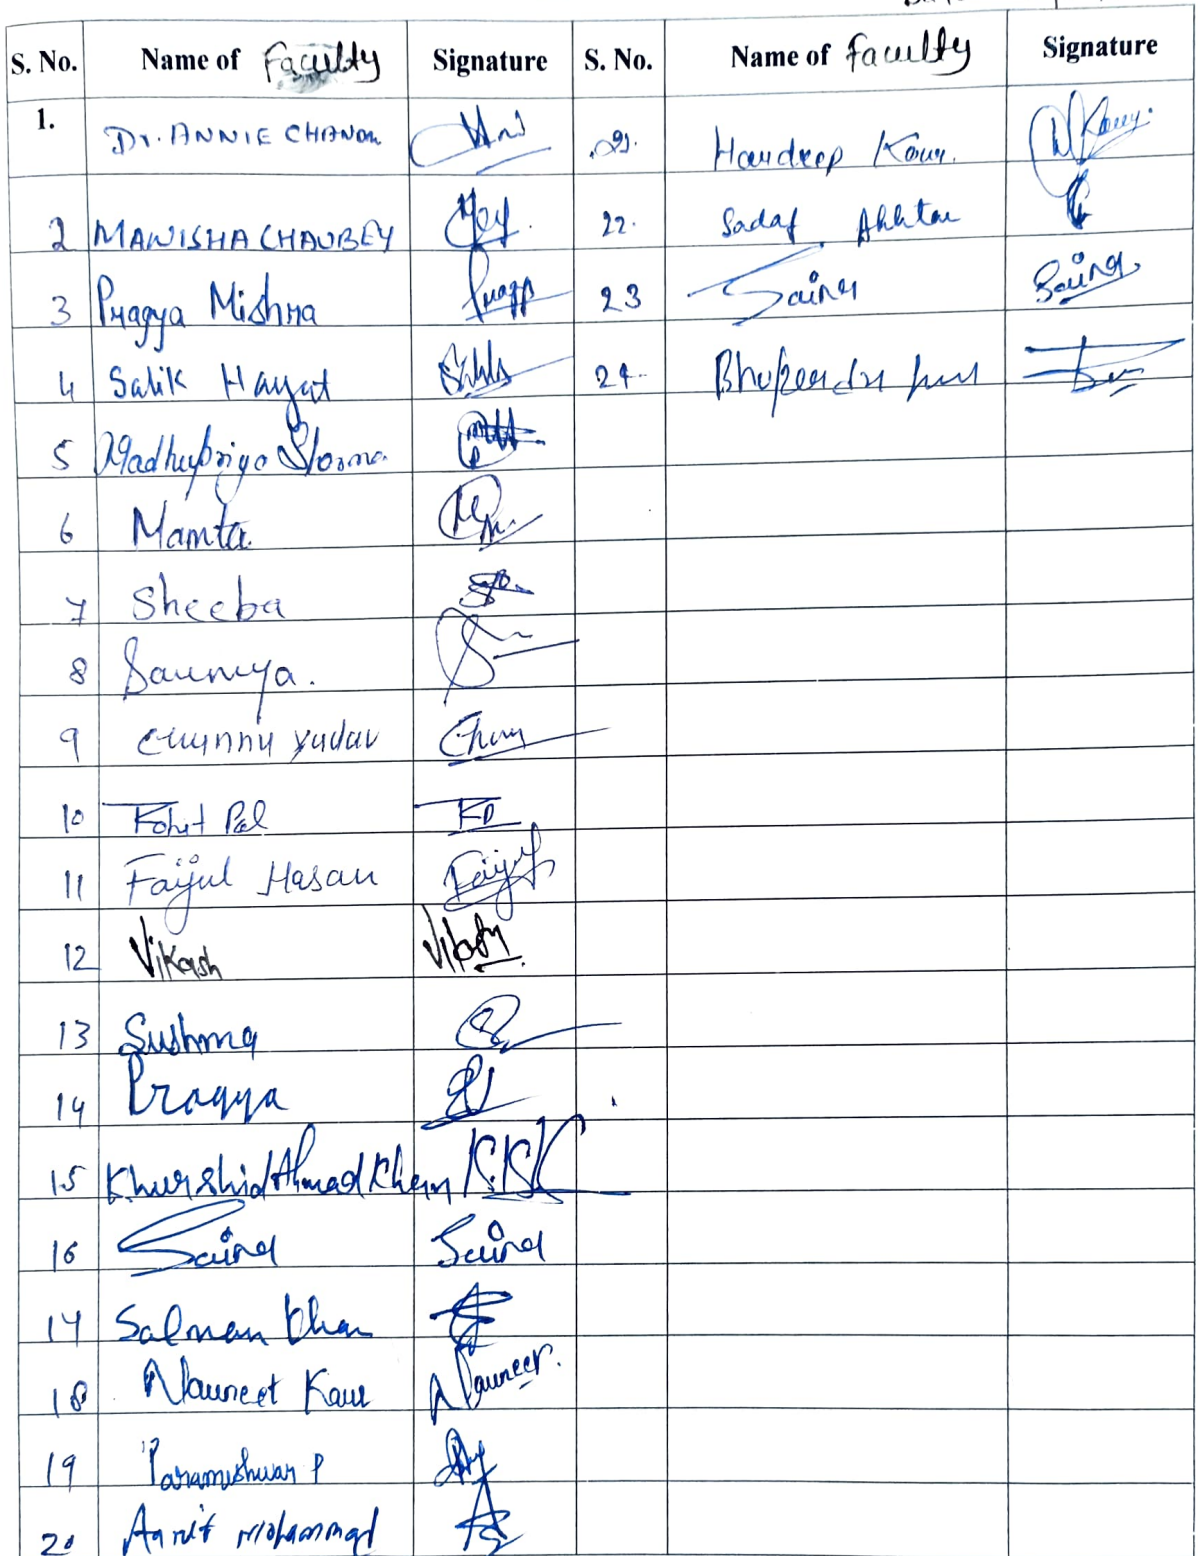 S. No. Name of Faculty Signature S. No. Name of faculty Signature
1. Dr. ANNIE CHANDRA 21. Hardeep Kaur.
2 MANISHA CHAUBEY 22. Sadaf Akhtar
3 Pragya Mishra 23 Saima Saima
4 Salik Hayat 24. Bhupendra
5 Madhupriya Sharma.
6 Mamta
7 Sheeba
8 Saumya.
9 Chunnu yadav
10 Rohit Pal
11 Faijul Hasan
12 Vikash
13 Sushma
14 Pragya
15 Khurshid Ahmad Khan K.K
16 Saima Saima
17 Salman khan
18 Navneet Kaur Navneet.
19 Parameshwar P
20 Mohammad